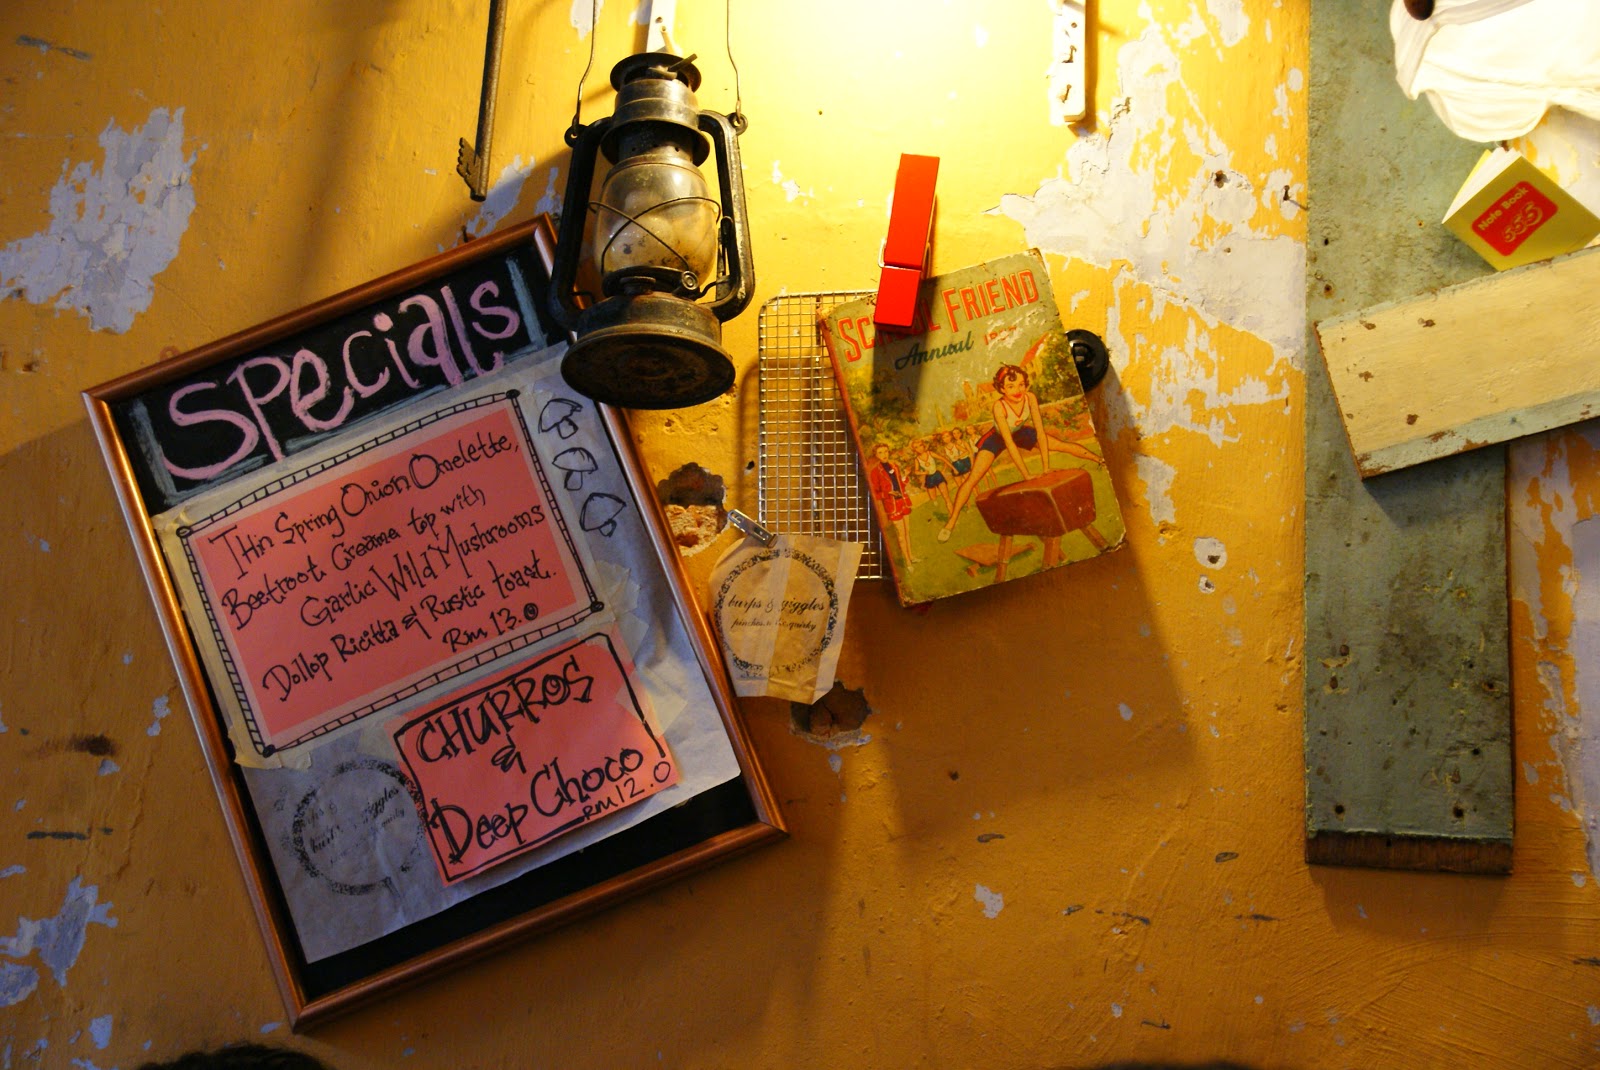 Specials
Thin Spring Onion Omelette,
Beetroot Creame top with
Garlic Wild Mushrooms
Dollop Ricitta & Rustic toast.
Rm 13.0
CHURROS
&
Deep Choco
RM 12.0
burps & giggles
SCHOOL FRIEND
Annual
Note Book
555